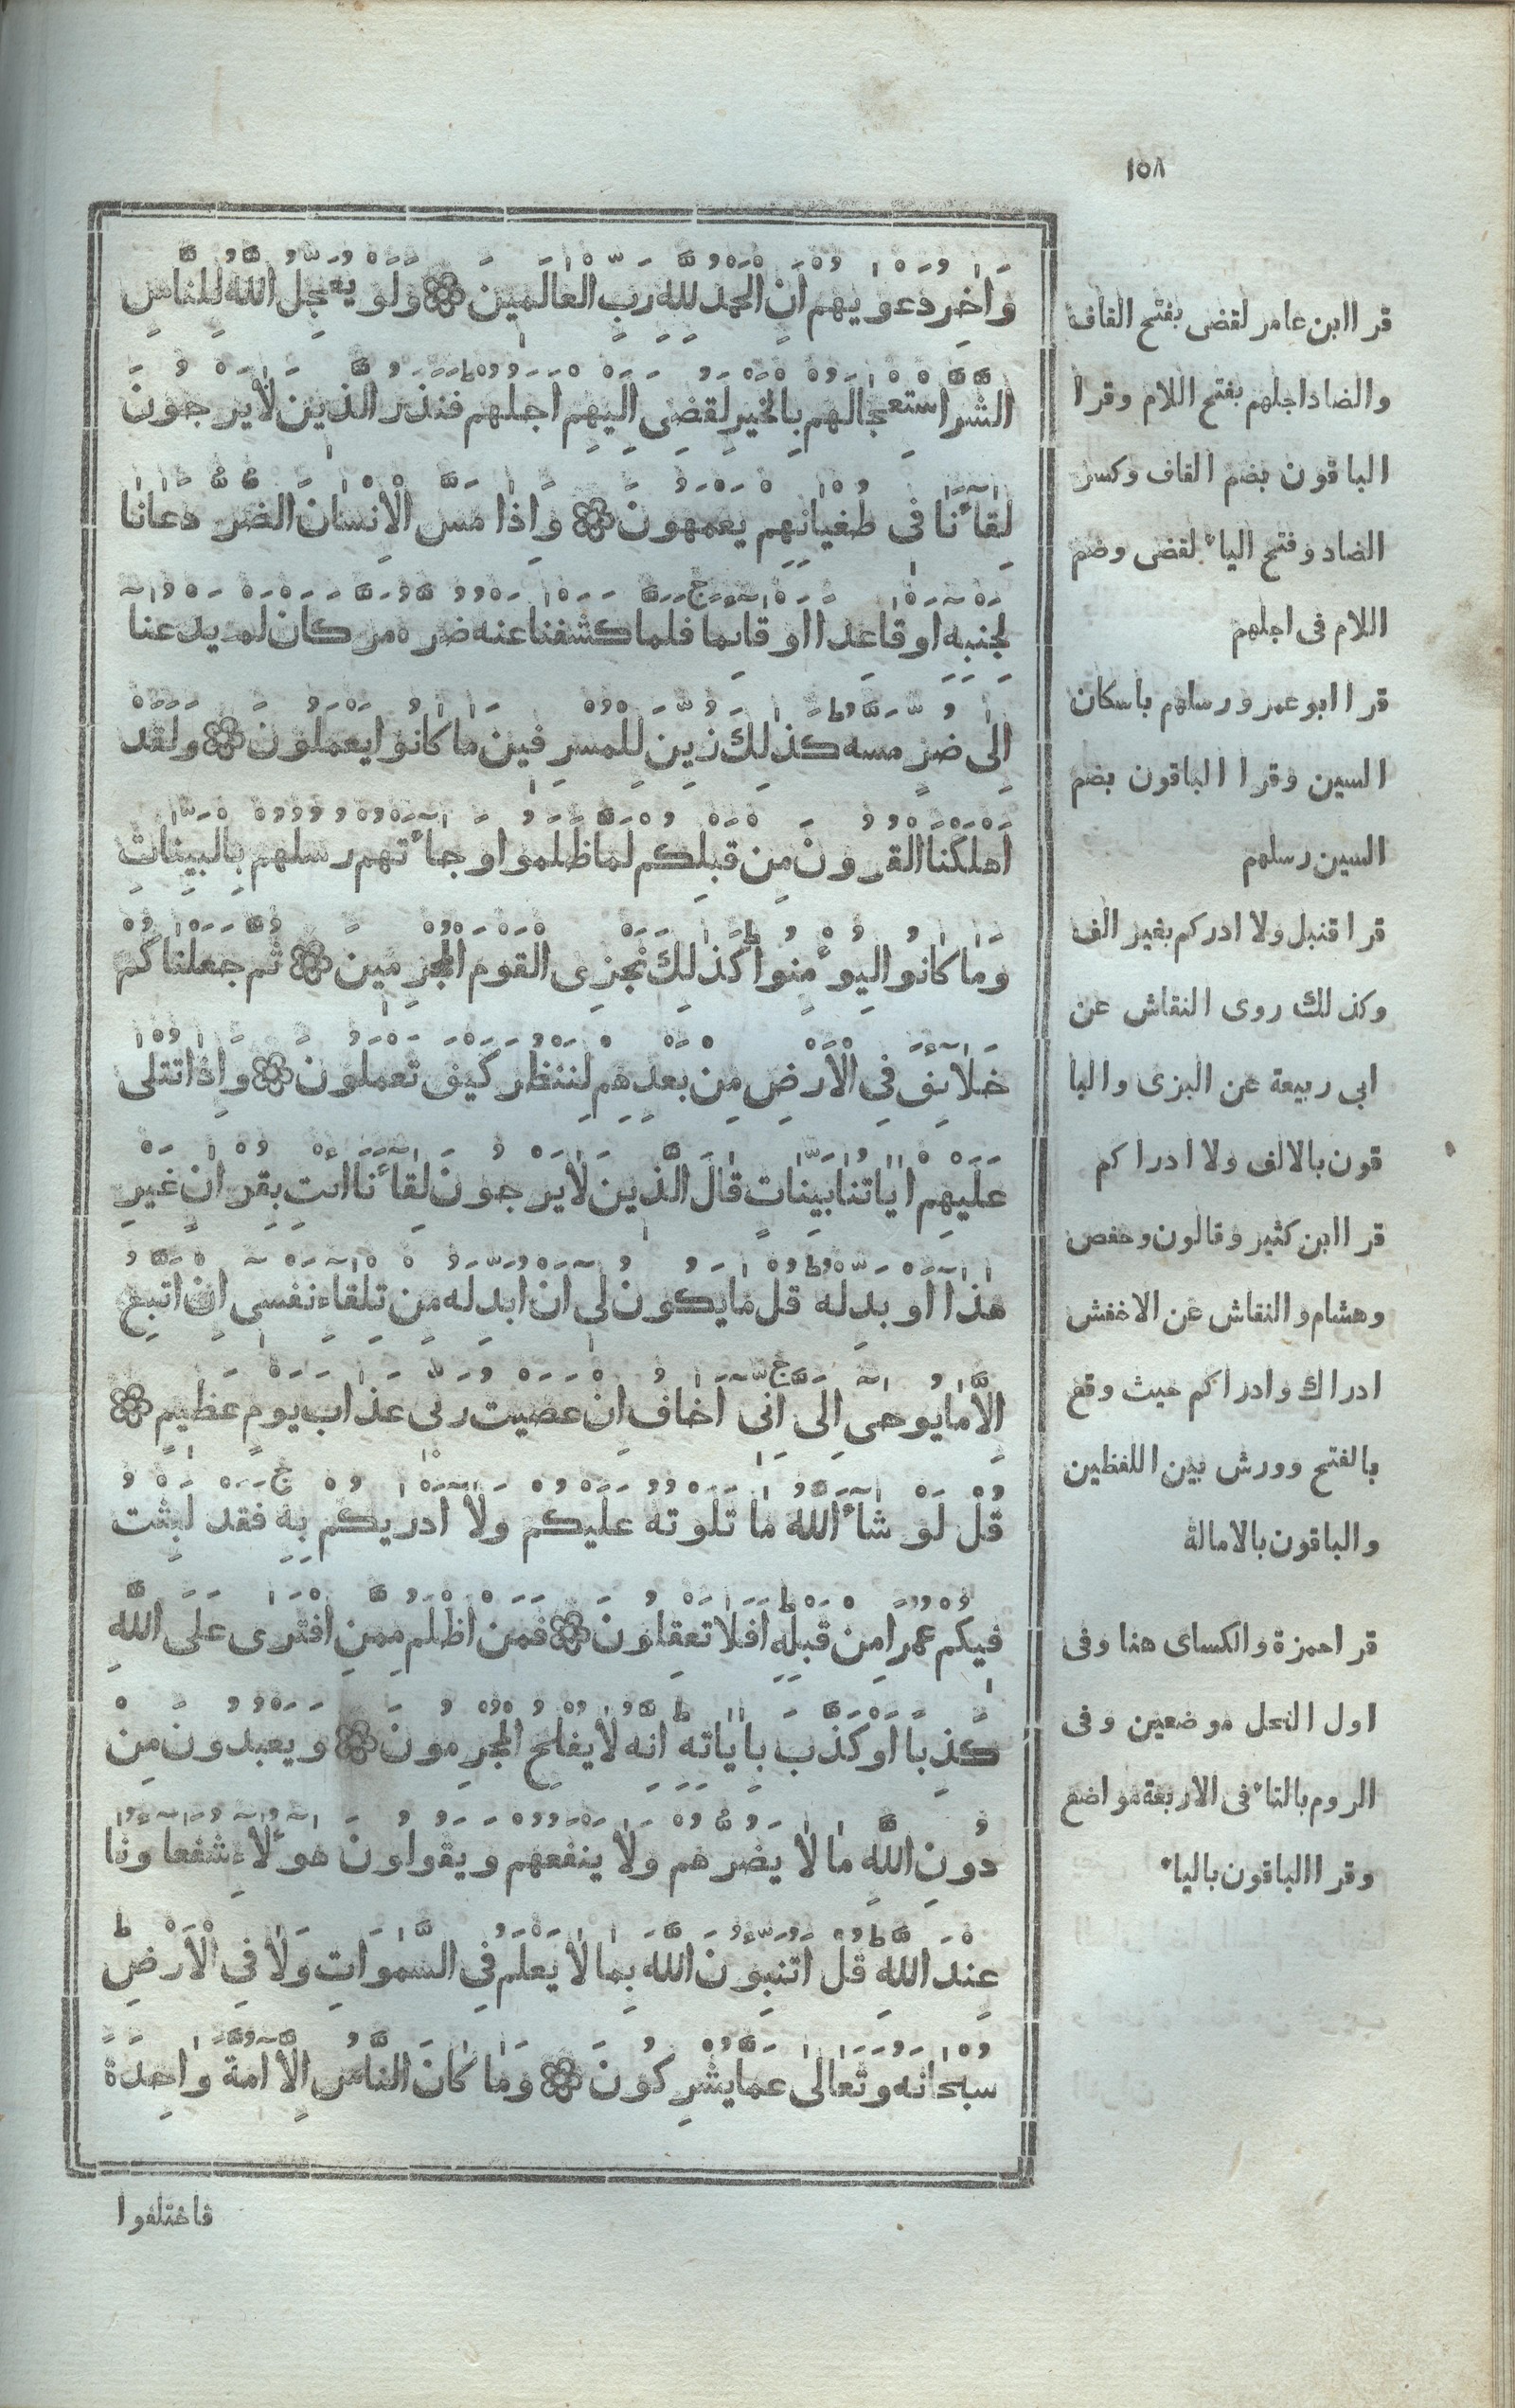 ١٥٨
وَاٰخِرُ دَعْوٰيهُمْ اَنِ الْحَمْدُ لِلّٰهِ رَبِّ الْعَالَمِينَ ۞ وَلَوْ يُعَجِّلُ اللّٰهُ لِلنَّاسِ
الشَّرَّ اسْتِعْجَالَهُمْ بِالْخَيْرِ لَقُضِىَ اِلَيْهِمْ اَجَلُهُمْ ط فَنَذَرُ الَّذِينَ لَا يَرْجُونَ
لِقَاءَنَا فِى طُغْيَانِهِمْ يَعْمَهُونَ ۞ وَاِذَا مَسَّ الْاِنْسَانَ الضُّرُّ دَعَانَا
لِجَنْبِهِ اَوْ قَاعِدًا اَوْ قَائِمًا ج فَلَمَّا كَشَفْنَا عَنْهُ ضُرَّهُ مَرَّ كَاَنْ لَمْ يَدْعُنَا
اِلٰى ضُرٍّ مَسَّهُ ط كَذٰلِكَ زُيِّنَ لِلْمُسْرِفِينَ مَا كَانُوا يَعْمَلُونَ ۞ وَلَقَدْ
اَهْلَكْنَا الْقُرُونَ مِنْ قَبْلِكُمْ لَمَّا ظَلَمُوا وَجَاءَتْهُمْ رُسُلُهُمْ بِالْبَيِّنَاتِ
وَمَا كَانُوا لِيُؤْمِنُوا ط كَذٰلِكَ نَجْزِى الْقَوْمَ الْمُجْرِمِينَ ۞ ثُمَّ جَعَلْنَاكُمْ
خَلَائِفَ فِى الْاَرْضِ مِنْ بَعْدِهِمْ لِنَنْظُرَ كَيْفَ تَعْمَلُونَ ۞ وَاِذَا تُتْلٰى
عَلَيْهِمْ اٰيَاتُنَا بَيِّنَاتٍ قَالَ الَّذِينَ لَا يَرْجُونَ لِقَاءَنَا ائْتِ بِقُرْاٰنٍ غَيْرِ
هٰذَا اَوْ بَدِّلْهُ ط قُلْ مَا يَكُونُ لِى اَنْ اُبَدِّلَهُ مِنْ تِلْقَاءِ نَفْسِى اِنْ اَتَّبِعُ
اِلَّا مَا يُوحٰى اِلَىَّ ج اِنِّى اَخَافُ اِنْ عَصَيْتُ رَبِّى عَذَابَ يَوْمٍ عَظِيمٍ ۞
قُلْ لَوْ شَاءَ اللّٰهُ مَا تَلَوْتُهُ عَلَيْكُمْ وَلَا اَدْرٰيكُمْ بِهِ ج فَقَدْ لَبِثْتُ
فِيكُمْ عُمُرًا مِنْ قَبْلِهِ ط اَفَلَا تَعْقِلُونَ ۞ فَمَنْ اَظْلَمُ مِمَّنِ افْتَرٰى عَلَى اللّٰهِ
كَذِبًا اَوْ كَذَّبَ بِاٰيَاتِهِ ط اِنَّهُ لَا يُفْلِحُ الْمُجْرِمُونَ ۞ وَيَعْبُدُونَ مِنْ
دُونِ اللّٰهِ مَا لَا يَضُرُّهُمْ وَلَا يَنْفَعُهُمْ وَيَقُولُونَ هٰؤُلَاءِ شُفَعَاؤُنَا
عِنْدَ اللّٰهِ ط قُلْ اَتُنَبِّؤُنَ اللّٰهَ بِمَا لَا يَعْلَمُ فِى السَّمٰوَاتِ وَلَا فِى الْاَرْضِ ط
سُبْحَانَهُ وَتَعَالٰى عَمَّا يُشْرِكُونَ ۞ وَمَا كَانَ النَّاسُ اِلَّا اُمَّةً وَاحِدَةً
فاختلفوا
قرا ابن عامر لقضى بفتح القاف
والضاد اجلهم بفتح اللام وقرا
الباقون بضم القاف وكسر
الضاد وفتح الياء لقضى وضم
اللام فى اجلهم
قرا ابو عمرو رسلهم باسكان
السين وقرا الباقون بضم
السين رسلهم
قرا قنبل ولا ادركم بغير الف
وكذلك روى النقاش عن
ابى ربيعة عن البزى والبا
قون بالالف ولا ادراكم
قرا ابن كثير وقالون وحفص
وهشام والنقاش عن الاخفش
ادراك وادراكم حيث وقع
بالفتح وورش بين اللفظين
والباقون بالامالة
قرا حمزة والكساى هنا وفى
اول النحل موضعين وفى
الروم بالتاء فى الاربعة مواضع
وقرا الباقون بالياء